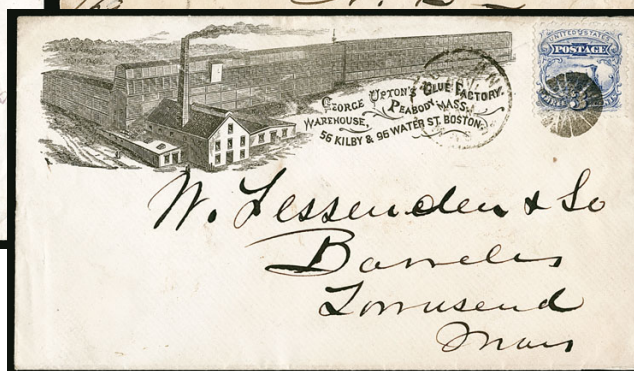 GEORGE UPTON'S GLUE FACTORY.
PEABODY MASS.
WAREHOUSE,
56 KILBY & 96 WATER ST. BOSTON.
UNITED STATES
POSTAGE
W. Fessenden & Co
Barrels
Townsend
Mass